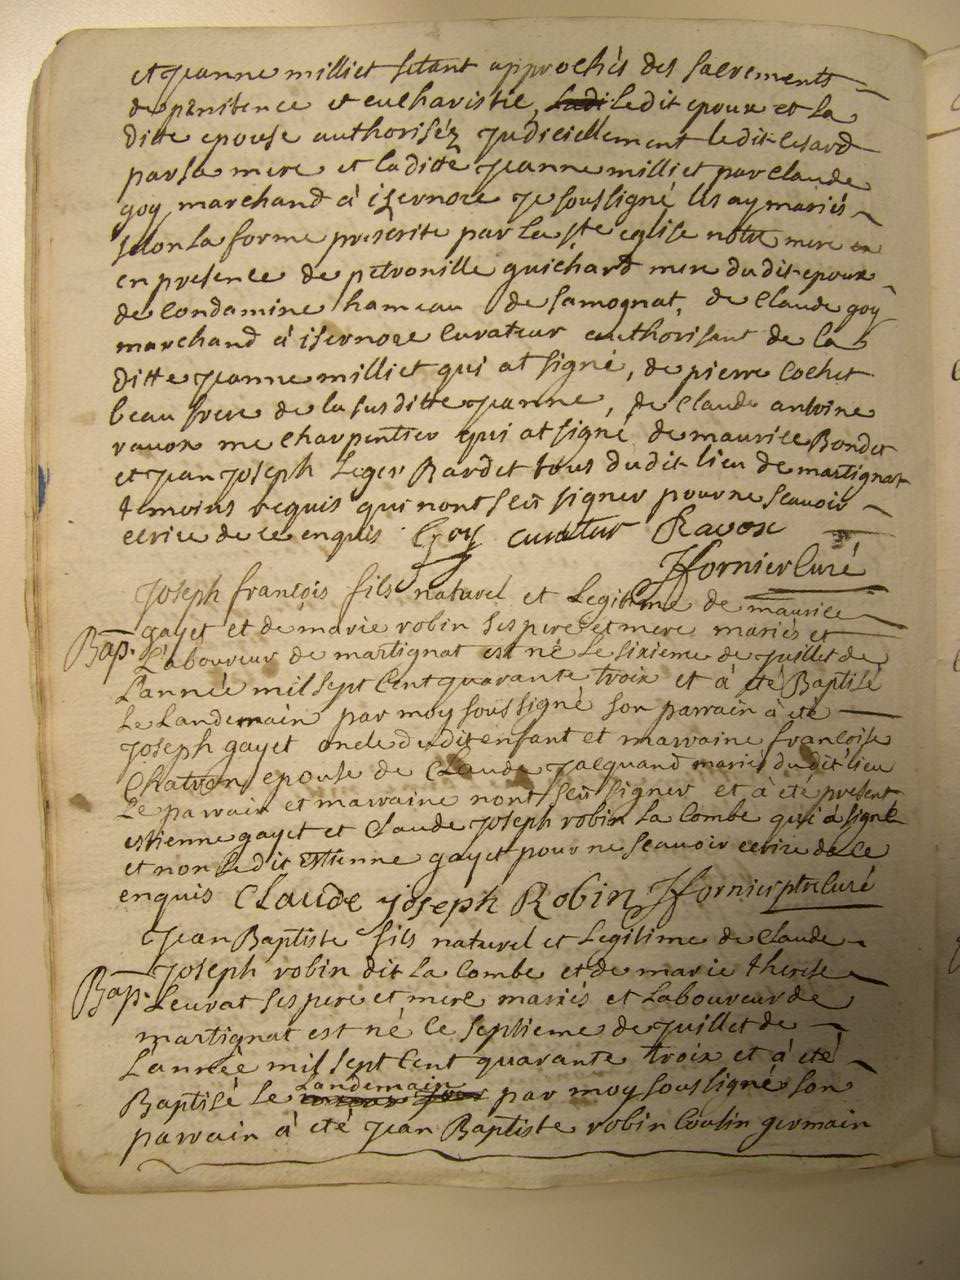 et Jeanne milliet s'etant approchés des sacrements
de penitence et eucharistie, ledit epoux et la
ditte epouse authorisés judiciellement ledit lesard
par sa mere et la ditte Jeanne milliet par claude
goy marchand à isernore Je soussigné les ay mariés
selon la forme prescrite par la ste eglise notre mere
en presence de petronille guichard mere dudit epoux
de Condamine hameau de samognat, de Claude goy
marchand à isernore Curateur authorisant de la
ditte Jeanne milliet qui at signé, de pierre Cochet
beau frere de la susditte Jeanne, de Claude antoine
ravox me charpentier qui at signé de maurice Bondet
et Jean Joseph Leger Bardet tous dudit lieu de martignat
temoins requis qui nont sçu signer pour ne scavoir
ecrire de ce enquis Goy curateur Ravox
JJfornier Curé
Joseph françois fils naturel et Legitime de maurice
Bap. gayet et de marie robin ses pere et mere mariés et
Laboureur de martignat est né le sixieme de Juillet de
L'année mil sept Cent quarante troix et à été Baptisé
Le Landemain par moy soussigné son parrain à été
Joseph gayet oncle dudit enfant et marraine françoise
Chatron epouse de Claude Jacquand mariés dudit lieu
Le parrain et marraine nont sçu signer et à été present
estienne gayet et Claude Joseph robin la Combe qui à signé
et non ledit estienne gayet pour ne scavoir ecrire de ce
enquis Claude joseph Robin JJfornier ptre Curé
Jean Baptiste fils naturel et Legitime de Claude
Bap. Joseph robin dit la Combe et de marie therese
Leurat ses pere et mere mariés et Laboureur de
martignat est né le septieme de Juillet de
L'année mil sept Cent quarante troix et à été
Baptisé le Landemain par moy soussigné son
parrain à été Jean Baptiste robin Cousin germain